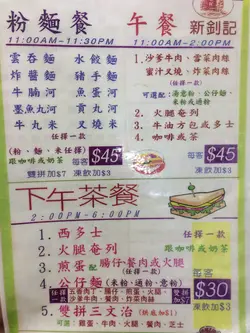 粉麵餐
11:00AM-11:30PM
雲吞麵 水餃麵
炸醬麵 豬手麵
牛腩河 魚蛋河
墨魚丸河 貢丸河
牛丸米 叉燒米
(任擇一款)
跟咖啡或奶茶
每客 $45
雙拼加$7 凍飲加$3
午餐
新釗記
11:00AM-2:00PM
1. 沙爹牛肉、雪菜肉絲
蜜汁叉燒、炸菜肉絲
(任擇一款)
可選配: 湯意粉、公仔麵、
米粉或通粉
2. 火腿奄列
3. 牛油方包或多士
4. 咖啡或奶茶
每客 $45
凍飲加$3
下午茶餐
2:00PM-6:00PM
1. 西多士
2. 火腿奄列
3. 煎蛋 配 腸仔、餐肉或火腿
(任擇一款)
4. 公仔麵 (米粉、通粉、意粉)
任擇一款
五香肉丁、腸仔、煎蛋、火腿、
沙爹牛肉、餐肉、炸菜肉絲
雙拼加$7
5. 雙拼三文治 (烘底加$1)
可選: 雞蛋、牛肉、火腿、餐肉、芝士
跟咖啡或奶茶
每客
$30
凍飲加$3